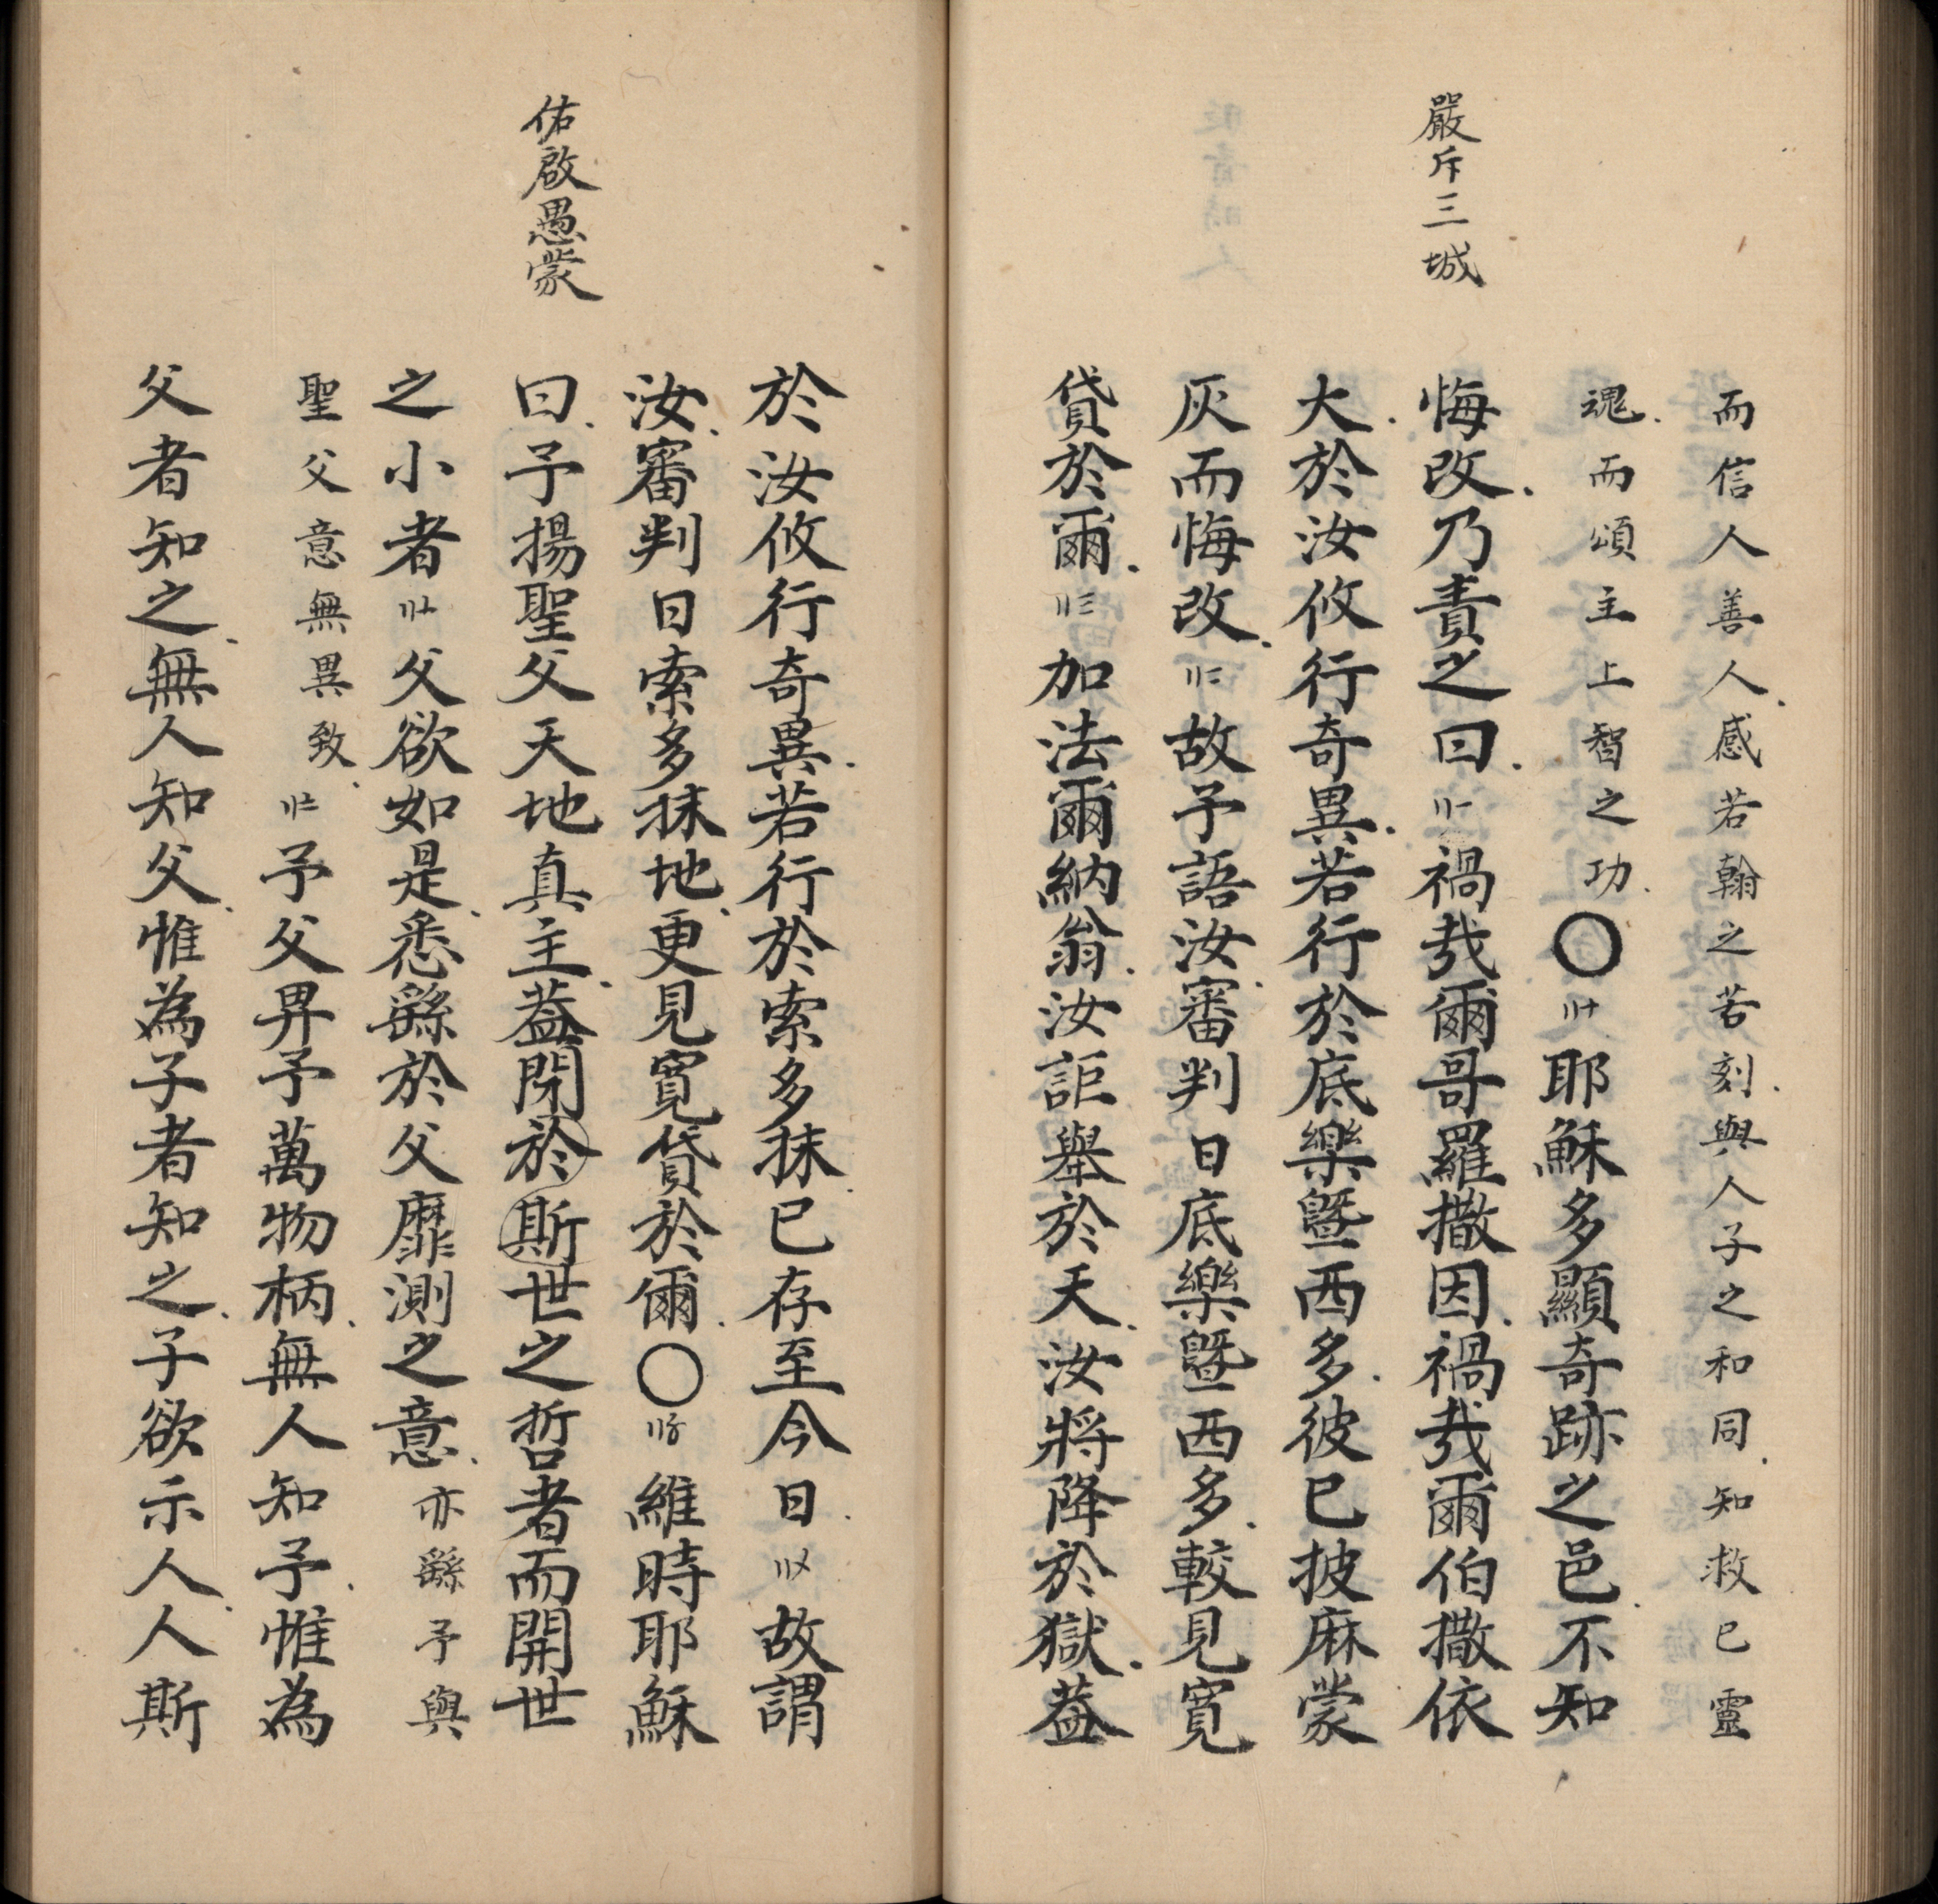 嚴斥三城
而信人善人感若翰之苦刻與人子之和同知救已靈
魂而頌主上智之功〇〢〸耶穌多顯奇跡之邑不知
悔改乃責之曰〢一禍㢤爾哥羅撒因禍㢤爾伯撒依
大於汝攸行奇異若行於底樂曁西多彼已披麻蒙
灰而悔改〢二故予語汝審判日底樂曁西多較見寬
貸於爾〢三加法爾納翁汝詎舉於天汝將降於獄葢
佑啟愚蒙
於汝攸行奇異若行於索多抹已存至今日〢〤故謂
汝審判日索多抹地更見寬貸於爾〇〢〥維時耶穌
曰予揚聖父天地真主葢閉於斯世之哲者而開世
之小者〢〦父欲如是悉繇於父靡測之意亦繇予與
聖父意無異致〢〧予父畀予萬物柄無人知予惟為
父者知之無人知父惟為子者知之子欲示人人斯